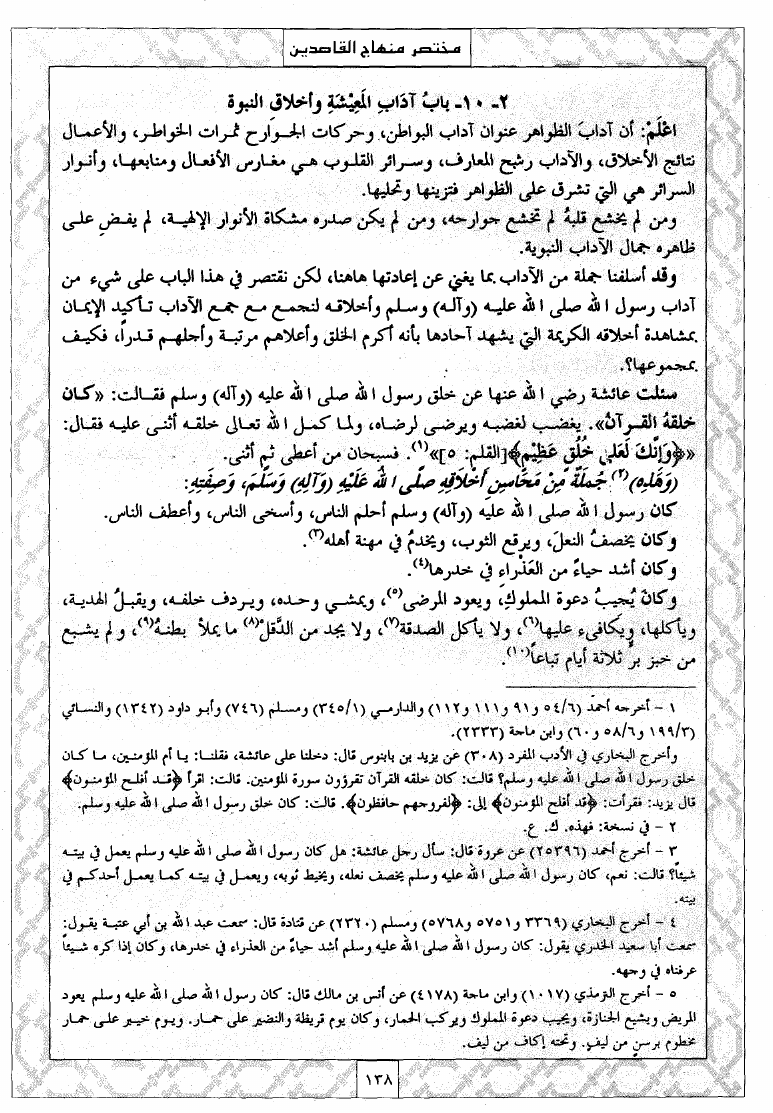 مختصر منهاج القاصدين
٢- ١٠- بابُ آدَابِ المَعِيْشَةِ وأخلاق النبوة
اعْلَمْ: أن آدابَ الظواهر عنوان آداب البواطن، وحركات الجوارح ثمرات الخواطر، والأعمال
نتائج الأخلاق، والآداب رشح المعارف، وسرائر القلوب هي مغارس الأفعال ومنابعها، وأنوار
السرائر هي التي تشرق على الظواهر فتزينها وتحليها.
ومن لم يخشع قلبهُ لم تخشع جوارحه، ومن لم يكن صدره مشكاة الأنوار الإلهية، لم يفضِ على
ظاهره جمال الآداب النبوية.
وقد أسلفنا جملة من الآداب بما يغني عن إعادتها هاهنا، لكن نقتصر في هذا الباب على شيء من
آداب رسول الله صلى الله عليه (وآله) وسلم وأخلاقه لنجمع مع جمع الآداب تأكيد الإيمان
بمشاهدة أخلاقه الكريمة التي يشهد آحادها بأنه أكرم الخلق وأعلاهم مرتبة وأجلهم قدراً، فكيف
بمجموعها؟.
سئلت عائشة رضي الله عنها عن خلق رسول الله صلى الله عليه (وآله) وسلم فقالت: «كان
خلقهُ القرآن». يغضب لغضبه ويرضى لرضاه، ولما كمل الله تعالى خلقه أثنى عليه فقال:
«﴿وَإِنَّكَ لَعَلى خُلُقٍ عَظِيْمٍ﴾[القلم: ٥]»(١). فسبحان من أعطى ثم أثنى.
(وَهَذِه)(٢) جُمْلَةٌ مِّنْ مَحَاسِنِ أَخْلَاقِهِ صَلَّى اللهُ عَلَيْهِ (وَآلِهِ) وَسَلَّمَ، وَصِفَتِهِ:
كان رسول الله صلى الله عليه (وآله) وسلم أحلم الناس، وأسخى الناس، وأعطف الناس.
وكان يخصفُ النعلَ، ويرقع الثوب، ويخدمُ في مهنة أهله(٣).
وكان أشد حياءً من العَذْراءِ في خدرها(٤).
وكانَ يُجيبُ دعوة المملوك، ويعود المرضى(٥)، ويمشي وحده، ويردف خلفه، ويقبلُ الهدية،
ويأكلها، ويكافىء عليها(٦)، ولا يأكل الصدقة(٧)، ولا يجد من الدَّقَل(٨) ما يملأ بطنهُ(٩)، ولم يشبع
من خبز برٍّ ثلاثة أيام تباعاً(١٠).
١ - أخرجه أحمد (٥٤/٦ و ٩١ و ١١١ و ١١٢) والدارمي (٣٤٥/١) ومسلم (٧٤٦) وأبو داود (١٣٤٢) والنسائي
(١٩٩/٣ و٥٨/٦ و ٦٠) وابن ماجة (٢٣٣٣).
وأخرج البخاري في الأدب المفرد (٣٠٨) عن يزيد بن بابنوس قال: دخلنا على عائشة، فقلنا: يا أم المؤمنين، ما كان
خلق رسول الله صلى الله عليه وسلم؟ قالت: كان خلقه القرآن تقرؤون سورة المؤمنين. قالت: اقرأ ﴿قد أفلح المؤمنون﴾
قال يزيد: فقرأت: ﴿قد أفلح المؤمنون﴾ إلى: ﴿لفروجهم حافظون﴾. قالت: كان خلق رسول الله صلى الله عليه وسلم.
٢ - في نسخة: فهذه. ك. ع.
٣ - أخرج أحمد (٢٥٣٩٦) عن عروة قال: سأل رجل عائشة: هل كان رسول الله صلى الله عليه وسلم يعمل في بيته
شيئاً؟ قالت: نعم، كان رسول الله صلى الله عليه وسلم يخصف نعله، ويخيط ثوبه، ويعمل في بيته كما يعمل أحدكم في
بيته.
٤ - أخرج البخاري (٣٣٦٩ و٥٧٥١ و٥٧٦٨) ومسلم (٢٣٢٠) عن قتادة قال: سمعت عبد الله بن أبي عتبة يقول:
سمعت أبا سعيد الخدري يقول: كان رسول الله صلى الله عليه وسلم أشد حياءً من العذراء في خدرها، وكان إذا كره شيئاً
عرفناه في وجهه.
٥ - أخرج الترمذي (١٠١٧) وابن ماجة (٤١٧٨) عن أنس بن مالك قال: كان رسول الله صلى الله عليه وسلم يعود
المريض ويشيع الجنازة، ويجيب دعوة المملوك ويركب الحمار، وكان يوم قريظة والنضير على حمار. ويوم خيبر على حمار
مخطوم برسنٍ من ليفٍ. وتحته إكاف من ليف.
١٣٨